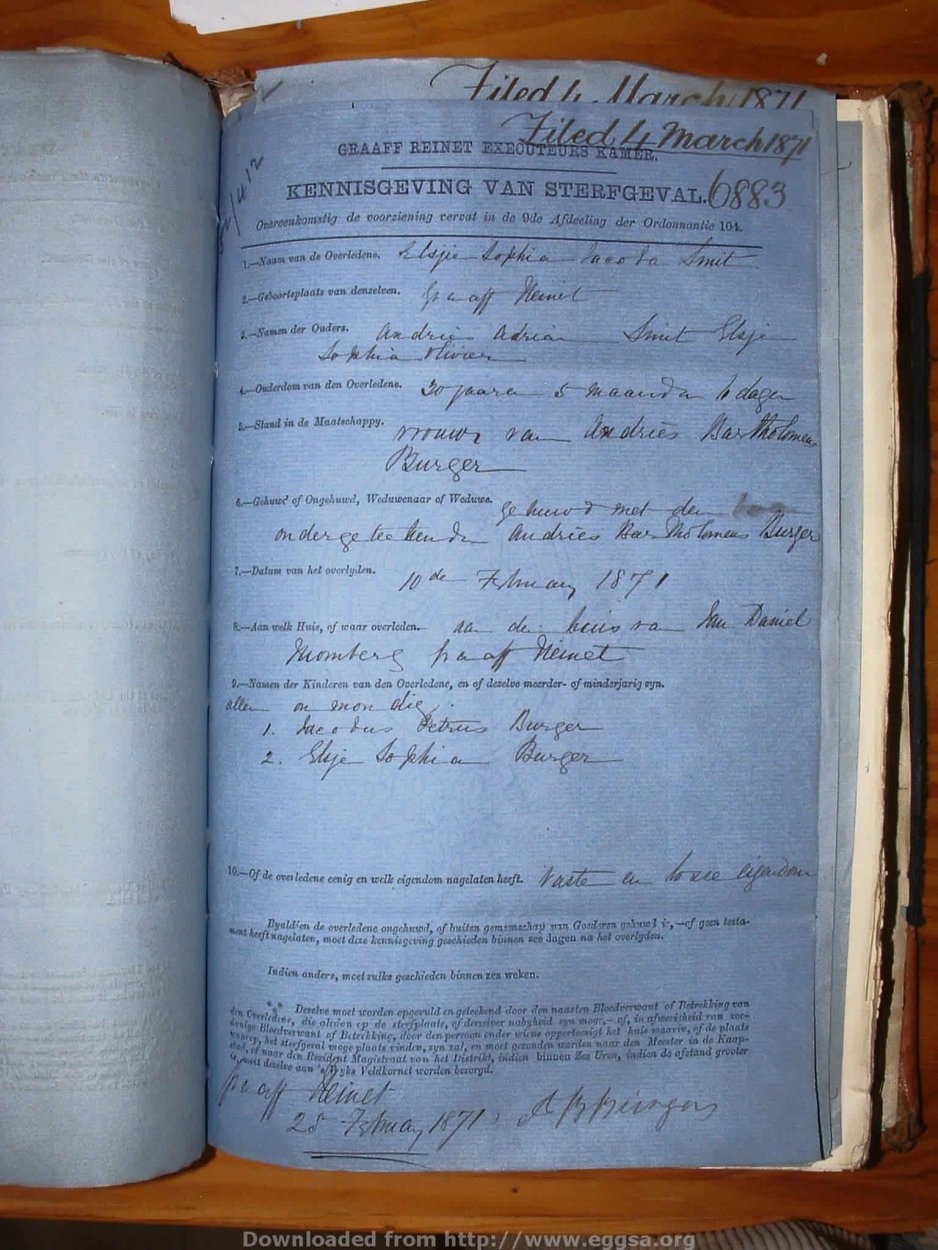 Filed 4 March 1871
Filed 4 March 1871
GRAAFF REINET EXECUTEURS KAMER.
KENNISGEVING VAN STERFGEVAL. 6883
Overeenkomstig de voorziening vervat in de 9de Afdeeling der Ordonnantie 104.
1.—Naam van de Overledene. Elsjie Sophia Jacoba Smit
2.—Geboorteplaats van denzelven. Graaff Reinet
3.—Namen der Ouders. Andries Adrian Smit Elsje
Sophia Olivier
4.—Ouderdom van den Overledene. 30 jaaren 5 maanden 6 dagen
5.—Stand in de Maatschappy. vrouw van Andries Bartholomeus
Burger
6.—Gehuwd of Ongehuwd, Weduwenaar of Weduwe. gehuwd met den
ondergeteekenden Andries Bartholomeus Burger
7.—Datum van het overlyden. 10de February 1871
8.—Aan welk Huis, of waar overleden. van Jan Daniel
Momberg Graaff Reinet
9.—Namen der Kinderen van den Overledene, en of dezelve meerder- of minderjarig zyn.
allen onmondig
1. Jacobus Petrus Burger
2. Elsje Sophia Burger
10.—Of de overledene eenig en welk eigendom nagelaten heeft. Vaste en losse eigendom
Byaldien de overledene ongehuwd, of buiten gemeenschap van Goederen gehuwd is,—of geen testa-
ment heeft nagelaten, moet deze kennisgeving geschieden binnen zes dagen na het overlyden.
Indien anders, moet zulks geschieden binnen zes weken.
⁂ Dezelve moet worden opgevuld en geteekend door den naasten Bloedverwant of Betrekking van
den Overledene, die alsdan op de sterfplaats, of derzelver nabyheid zyn moge,—of, in afwezigheid van zoo-
danige Bloedverwant of Betrekking, door den persoon onder wiens oppertoezigt het huis waarin, of de plaats
waarop, het sterfgeval moge plaats vinden, zyn zal, en moet gezonden worden naar den Meester in de Kaap-
stad, of naar den Resident Magistraat van het Distrikt, indien binnen Zes Uren, indien de afstand grooter
is, moet dezelve aan 's Ryks Veldkornet worden bezorgd.
Graaff Reinet
25 February 1871 A B Burger
Downloaded from http://www.eggsa.org